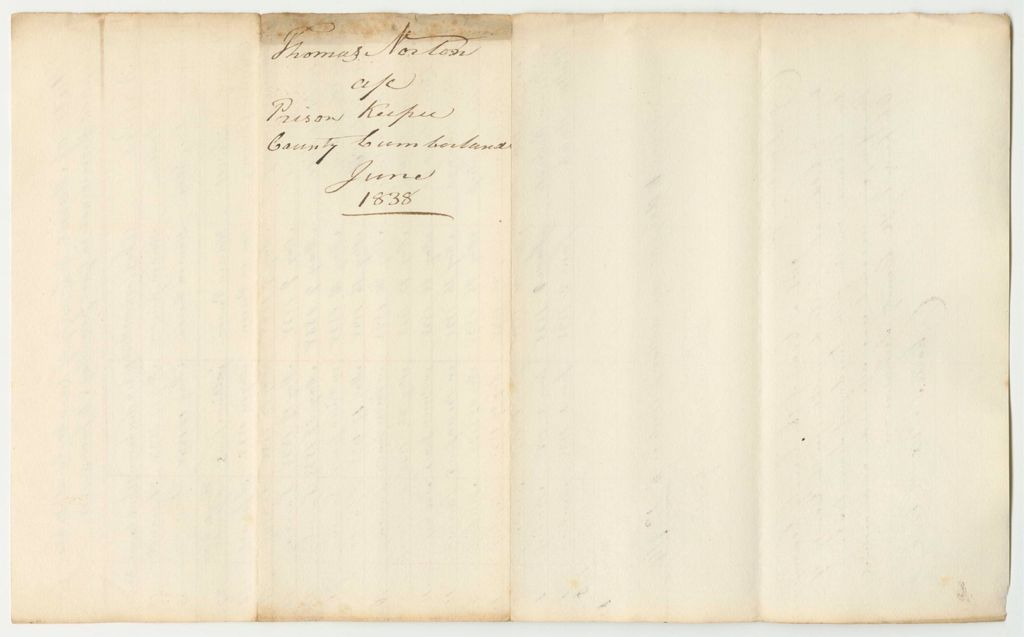 Thomas Norton
a/c
Prison Keeper
County Cumberland
June
1838